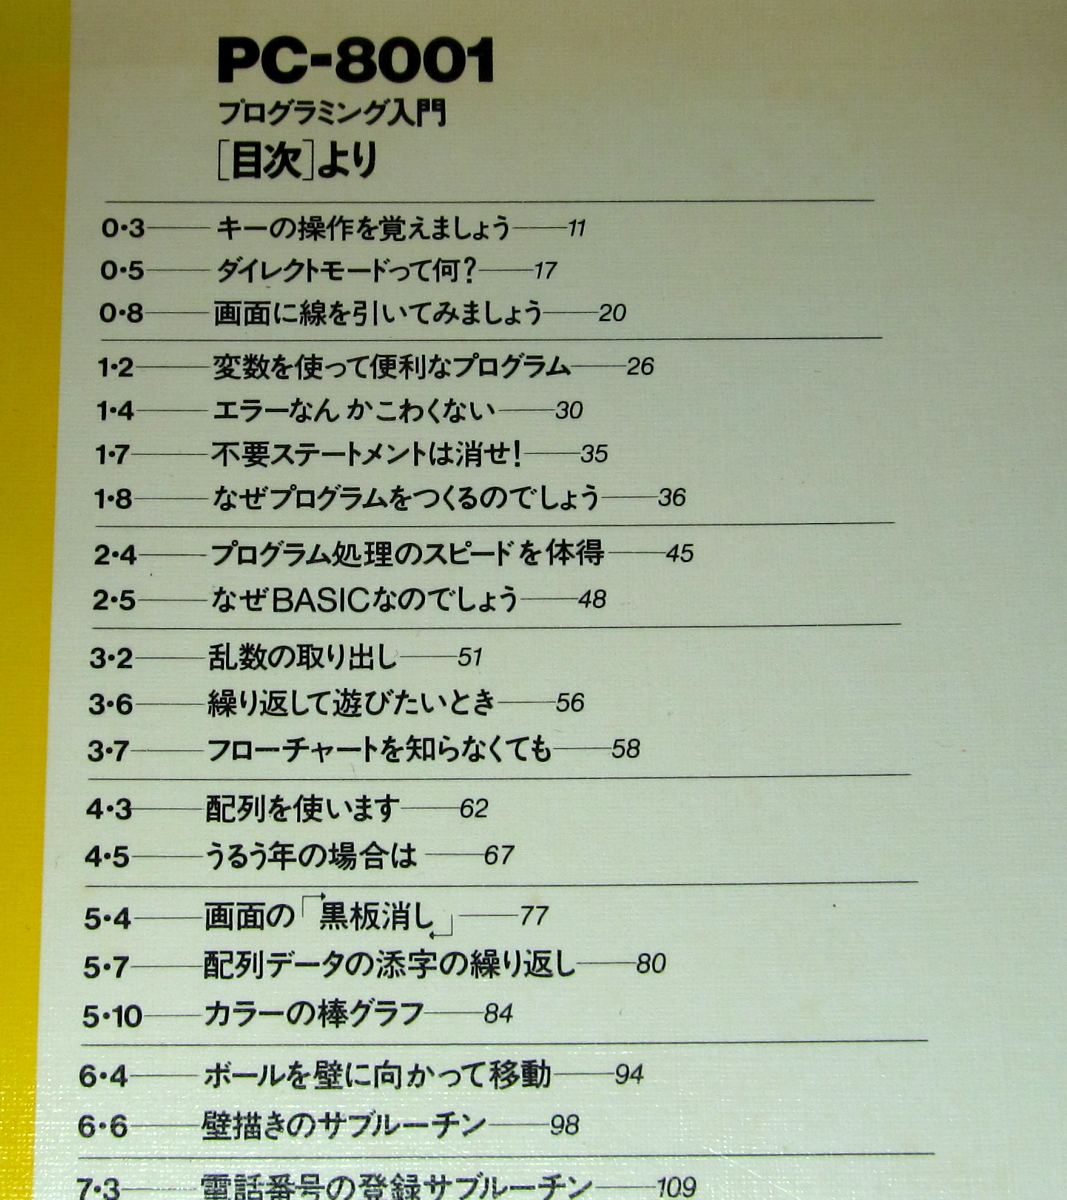 PC-8001
プログラミング入門
[目次]より
0・3 キーの操作を覚えましょう 11
0・5 ダイレクトモードって何? 17
0・8 画面に線を引いてみましょう 20
1・2 変数を使って便利なプログラム 26
1・4 エラーなんかこわくない 30
1・7 不要ステートメントは消せ! 35
1・8 なぜプログラムをつくるのでしょう 36
2・4 プログラム処理のスピードを体得 45
2・5 なぜBASICなのでしょう 48
3・2 乱数の取り出し 51
3・6 繰り返して遊びたいとき 56
3・7 フローチャートを知らなくても 58
4・3 配列を使います 62
4・5 うるう年の場合は 67
5・4 画面の「黒板消し」 77
5・7 配列データの添字の繰り返し 80
5・10 カラーの棒グラフ 84
6・4 ボールを壁に向かって移動 94
6・6 壁描きのサブルーチン 98
7・3 電話番号の登録サブルーチン 109